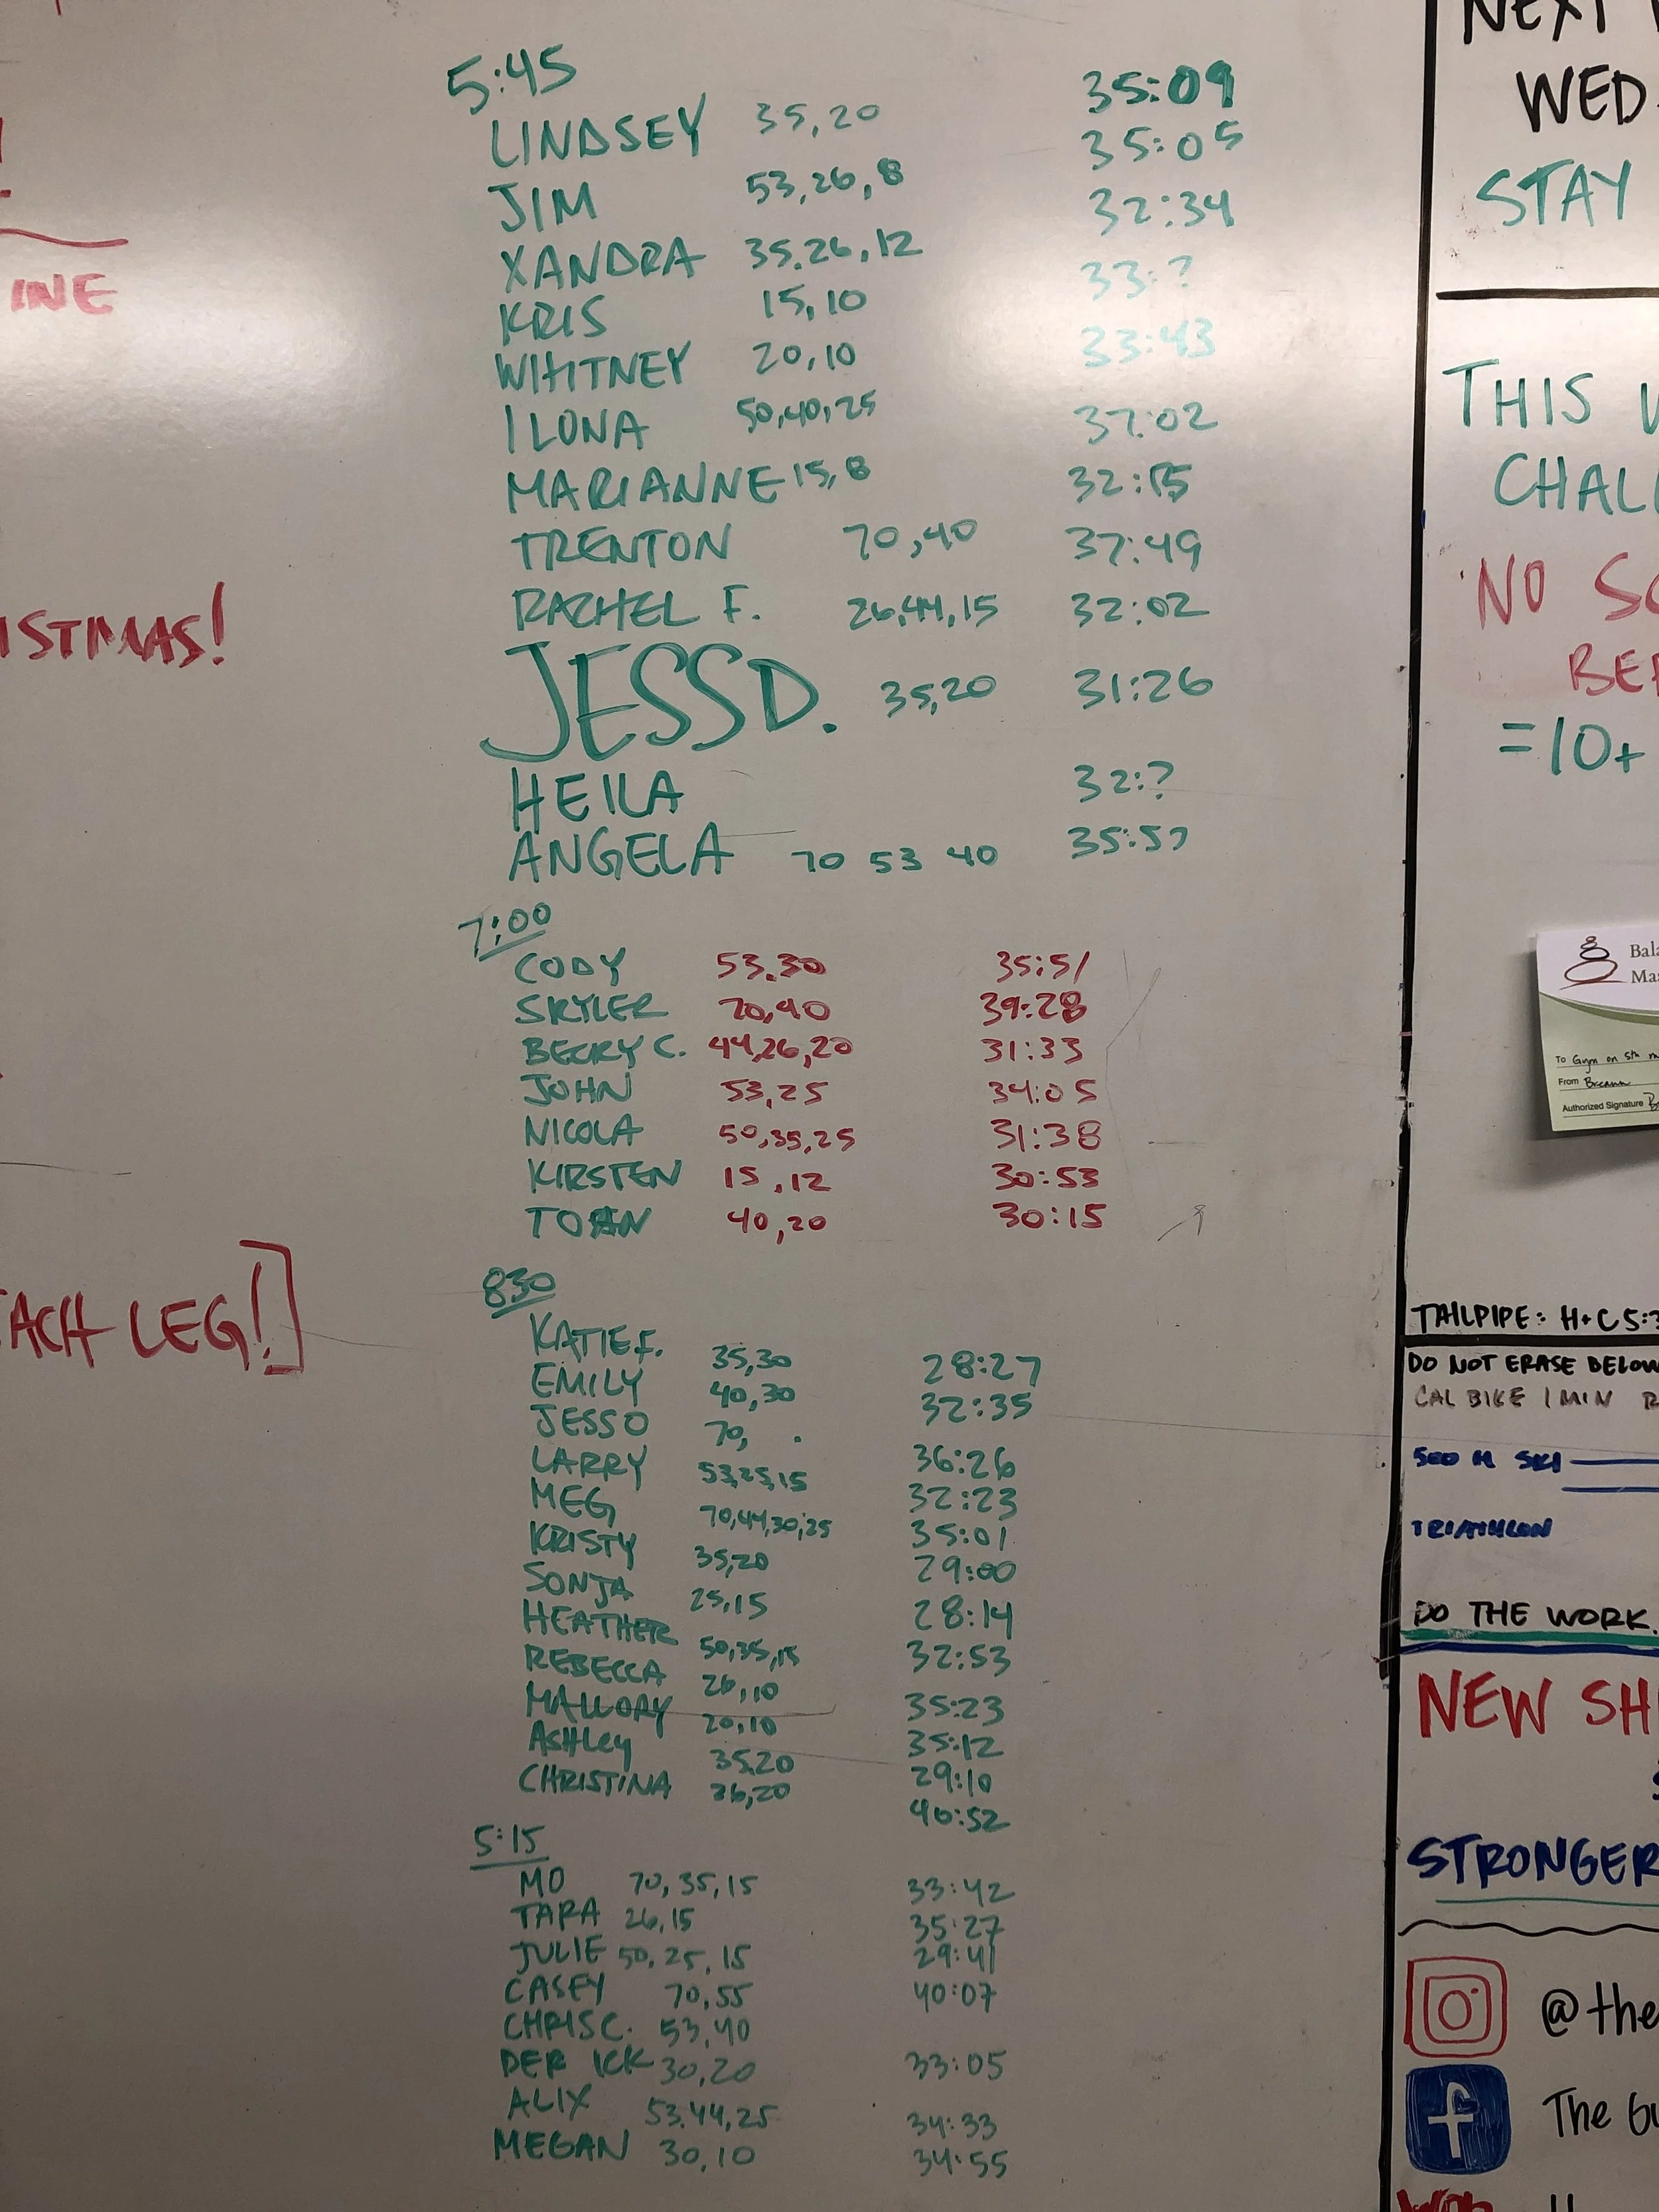 INE
ISTMAS!
EACH LEG!]
5:45 35:09
LINDSEY 35,20 35:05
JIM 53,26,8 32:34
XANDRA 35.26,12 33:?
KRIS 15,10 33:43
WHITNEY 20,10 37:02
ILONA 50,40,25 32:15
MARIANNE 15,8 37:49
TRENTON 70,40 32:02
RACHEL F. 26,44,15 31:26
JESS D. 35,20
HEILA 32:?
ANGELA 70 53 40 35:5?
7:00
CODY 53.30 35:51
SKYLER 70,40 39:28
BECKY C. 44,26,20 31:33
JOHN 53,25 34:05
NICOLA 50,35,25 31:38
KIRSTEN 15,12 30:53
TOAN 40,20 30:15
830
KATIE F. 35,30 28:27
EMILY 40,30 32:35
JESSO 70, 36:26
LARRY 53,25,15 32:23
MEG 70,44,30,25 35:01
KRISTY 35,20 29:00
SONJA 25,15 28:14
HEATHER 50,35,15 32:53
REBECCA 26,10 35:23
MALLORY 20,10 35:12
ASHLEY 35.20 29:10
CHRISTINA 26,20 40:52
5:15
MO 70,35,15 33:42
TARA 26,15 35:27
JULIE 50,25,15 29:41
CASEY 70,55 40:07
CHRIS C. 53,40
DERICK 30,20 33:05
ALIX 53.44,25 34:33
MEGAN 30,10 34:55
NEXT
WED.
STAY
THIS
CHAL
NO SC
BE
=10+
Bala
Mas
To Gym on 5th
From Breann
Authorized Signature
TAILPIPE: H+C 5:3
DO NOT ERASE BELOW
CAL BIKE 1 MIN R
500 M SKI
TRIATHLON
DO THE WORK.
NEW SH
STRONGER
@the
f The Gy